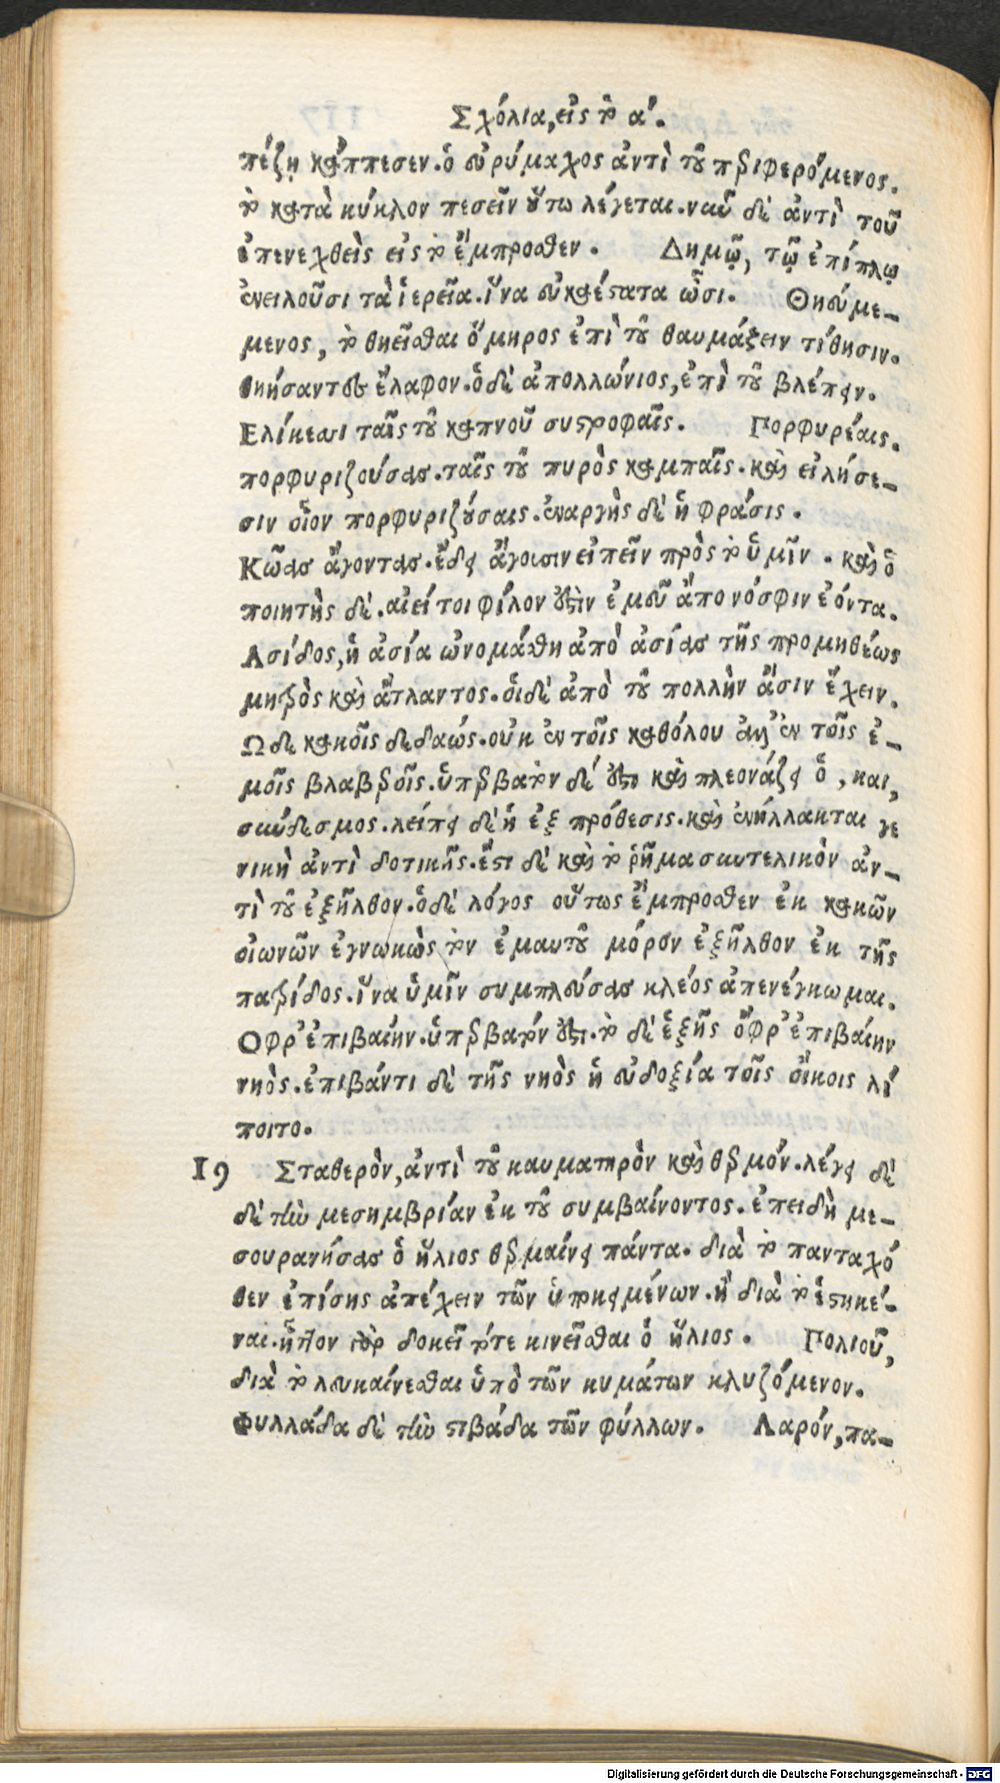 Σχόλια, εἰς τὸ α΄.
πέζῃ κάππεσεν. ὁ εὐρύμαχος ἀντὶ τοῦ περιφερόμενος.
τὸ κατὰ κύκλον πεσεῖν οὕτω λέγεται. ναῦ δὲ ἀντὶ τοῦ
ἐπενεχθεὶς εἰς τὸ ἔμπροσθεν. Δημῷ, τῷ ἐπίπλῳ
ἐνειλοῦσι τὰ ἱερεῖα. ἵνα εὐκαέστατα ὦσι. Θηεύμε-
μενος, τὸ θηεῖσθαι ὅμηρος ἐπὶ τοῦ θαυμάζειν τίθησιν.
θηήσαντες ἔλαφον. ὁ δὲ ἀπολλώνιος, ἐπὶ τοῦ βλέπειν.
Ελίκεσσι ταῖς τοῦ καπνοῦ συστροφαῖς. Πορφυρέαις.
πορφυριζούσας. ταῖς τοῦ πυρὸς καμπαῖς. καὶ εἰλήσε-
σιν οἷον πορφυριζούσαις. ἐναργὴς δὲ ἡ φράσις.
Κῶας ἄγοντας. ἔδει ἄγοισιν εἰπεῖν πρὸς τὸ ὑμῖν. καὶ ὁ
ποιητὴς δέ. αἰεί τοι φίλον ἐστὶν ἐμεῦ ἄπο νόσφιν ἐόντα.
Ασίδος, ἡ ἀσία ὠνομάσθη ἀπὸ ἀσίας τῆς προμηθέως
μητρὸς καὶ ἄτλαντος. οἱ δὲ ἀπὸ τοῦ πολλὴν ἄσιν ἔχειν.
Ωδε κακοῖς δεδαώς. οὐκ ἐν τοῖς καθόλου ἀλλ᾽ ἐν τοῖς ἐ-
μοῖς βλαβεροῖς. ὑπερβατὸν δέ ἐστι καὶ πλεονάζει ὁ, και,
σύνδεσμος. λείπει δὲ ἡ ἐξ πρόθεσις. καὶ ἐνήλλακται γε
νικὴ ἀντὶ δοτικῆς. ἔστι δὲ καὶ τὸ ῥῆμα συντελικὸν ἀν-
τὶ τοῦ ἐξῆλθον. ὁ δὲ λόγος οὕτως ἔμπροσθεν ἐκ κακῶν
οἰωνῶν ἐγνωκὼς τὸν ἐμαυτοῦ μόρον ἐξῆλθον ἐκ τῆς
πατρίδος. ἵνα ὑμῖν συμπλεύσας κλέος ἀπενέγκωμαι.
Οφρ᾽ ἐπιβαίην. ὑπερβατόν ἐστι. τὸ δὲ ἑξῆς ὄφρ᾽ ἐπιβαίην
νηὸς. ἐπιβάντι δὲ τῆς νηὸς ἡ εὐδοξία τοῖς οἴκοις λί
ποιτο.
19 Σταθερὸν, ἀντὶ τοῦ καυματηρὸν καὶ θερμόν. λέγει δὲ
δὲ τὴν μεσημβρίαν ἐκ τοῦ συμβαίνοντος. ἐπειδὴ με-
σουρανήσας ὁ ἥλιος θερμαίνει πάντα. διὰ τὸ πανταχό
θεν ἐπίσης ἀπέχειν τῶν ὑποκειμένων. ἢ διὰ τὸ ἑστηκέ-
ναι. ἧττον γὰρ δοκεῖ τότε κινεῖσθαι ὁ ἥλιος. Πολιοῦ,
διὰ τὸ λευκαίνεσθαι ὑπὸ τῶν κυμάτων κλυζόμενον.
Φυλλάδα δὲ τὴν στιβάδα τῶν φύλλων. Λαρόν, πα-
Digitalisierung gefördert durch die Deutsche Forschungsgemeinschaft - DFG